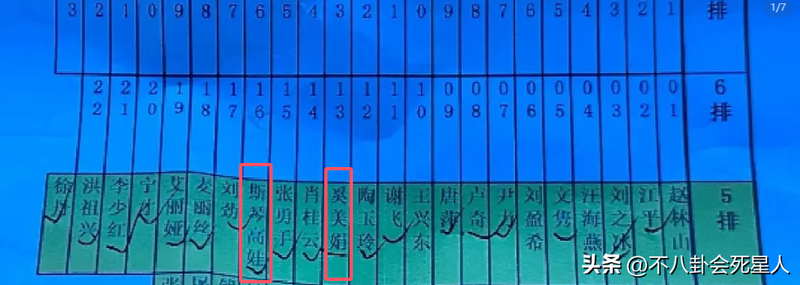 1/7
3 2 1 0 9 8 7 6 5 4 3 2 1 0 9 8 7 6 5 4 3 2 1 排
22 21 20 19 18 17 16 15 14 13 12 11 10 09 08 07 06 05 04 03 02 01 6排
徐丹 洪祖兴 李少红 宁才 艾丽娅 麦丽丝 刘劲 斯琴高娃 张勇手 肖桂云 奚美娟 陶玉玲 谢飞 王兴东 唐 卢奇 尹力 刘盈希 文隽 汪海燕 刘之冰 江平 赵林山 5排
头条 @不八卦会死星人